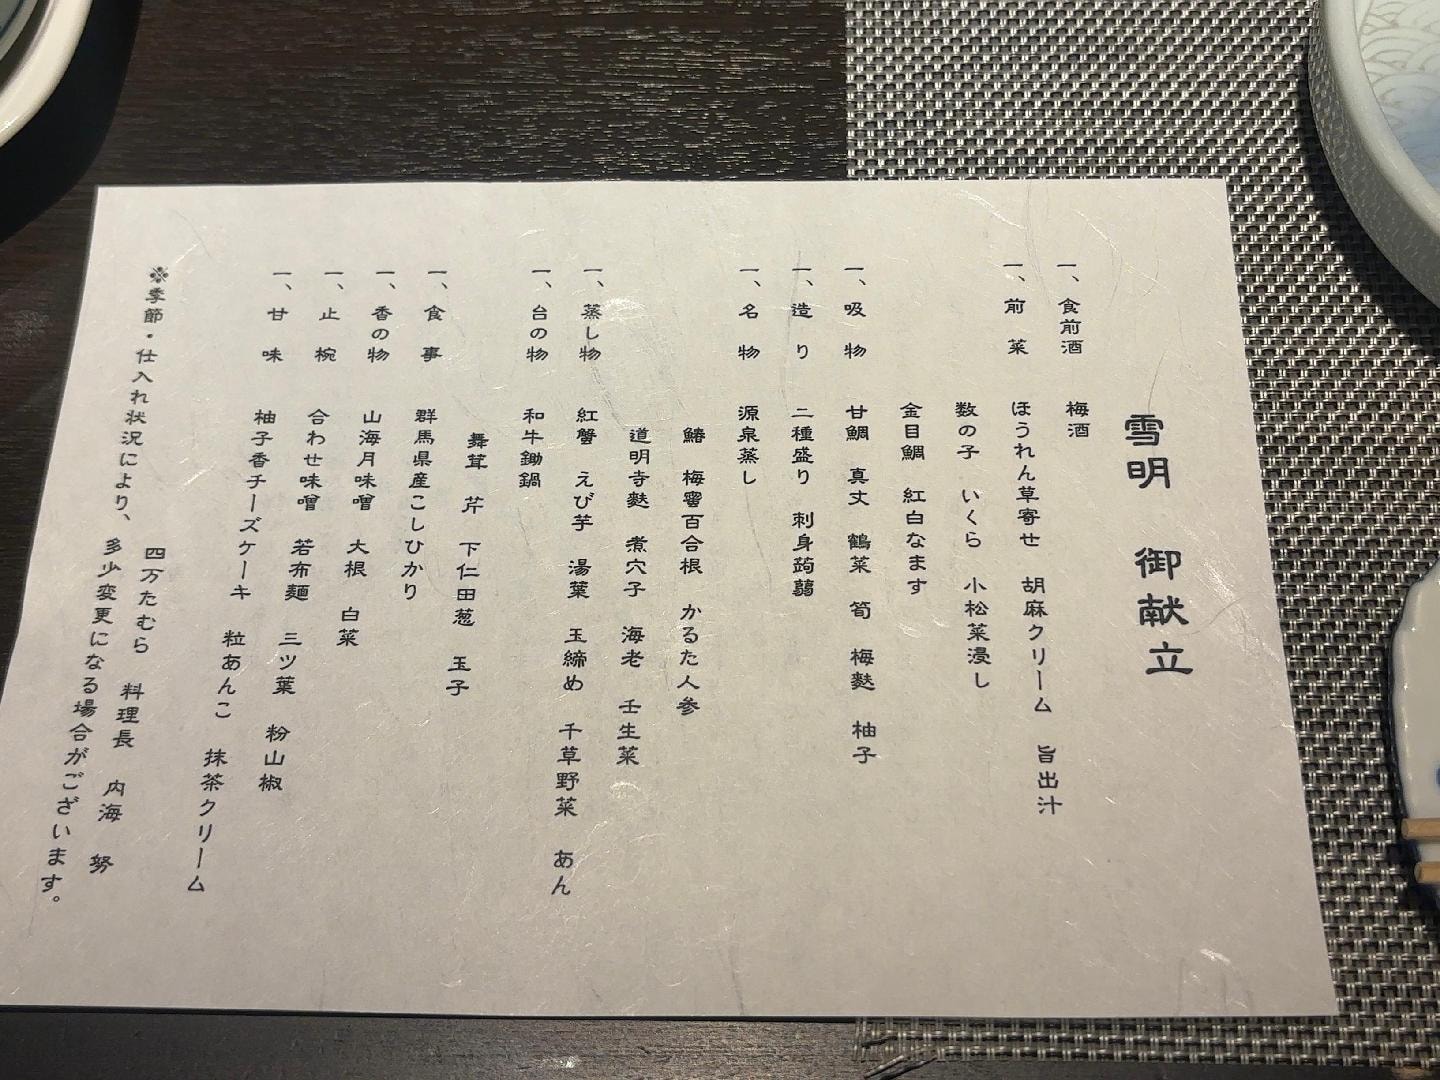 雪明 御献立
一、食前酒 梅酒
一、前菜 ほうれん草寄せ 胡麻クリーム 旨出汁
数の子 いくら 小松菜浸し
金目鯛 紅白なます
一、吸物 甘鯛 真丈 鶴菜 筍 梅麩 柚子
一、造り 二種盛り 刺身蒟蒻
一、名物 源泉蒸し
鰆 梅蜜百合根 かるた人参
道明寺麩 煮穴子 海老 壬生菜
一、蒸し物 紅蟹 えび芋 湯葉 玉締め 千草野菜 あん
一、台の物 和牛鋤鍋
舞茸 芹 下仁田葱 玉子
一、食事 群馬県産こしひかり
一、香の物 山海月味噌 大根 白菜
一、止椀 合わせ味噌 若布麺 三ツ葉 粉山椒
一、甘味 柚子香チーズケーキ 粒あんこ 抹茶クリーム
四万たむら 料理長 内海 努
※季節・仕入れ状況により、多少変更になる場合がございます。